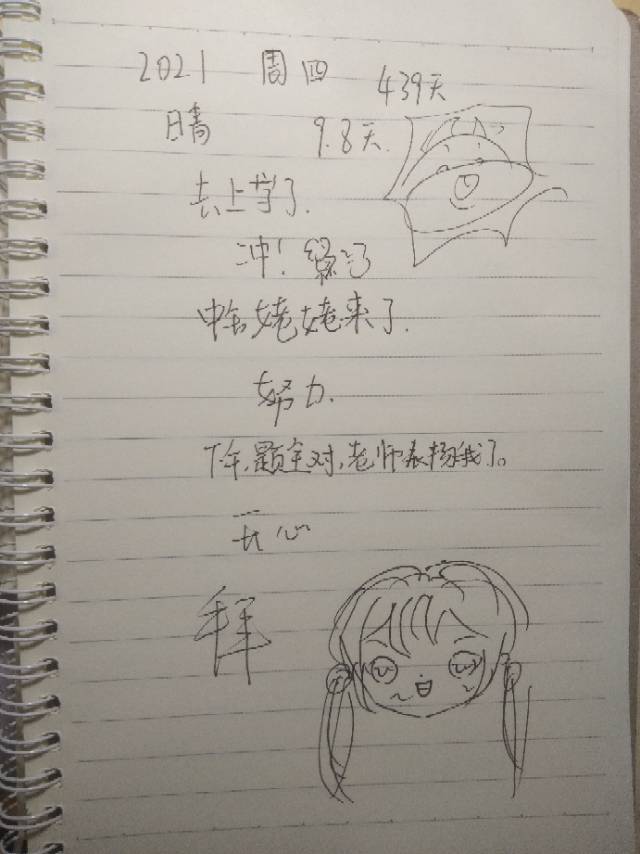 2021 周四 439天
晴 9.8天.
去上学了.
冲!
中午姥姥来了.
努力.
下午,题全对,老师表扬我了。
开心
拜